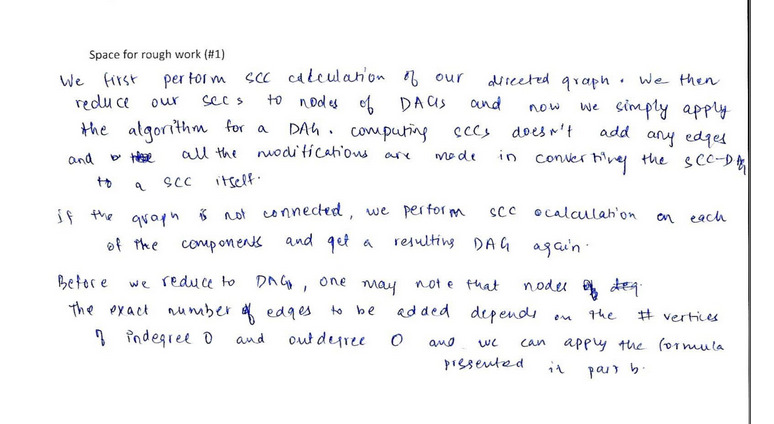 Space for rough work (#1)
We first perform SCC calculation of our directed graph. We then
reduce our SCCs to nodes of DAGs and now we simply apply
the algorithm for a DAG. computing SCCs doesn't add any edges
and all the modifications are made in converting the SCC-DAG
to a SCC itself.
if the graph is not connected, we perform SCC calculation on each
of the components and get a resulting DAG again.
Before we reduce to DAG, one may note that nodes
The exact number of edges to be added depends on the # vertices
of indegree 0 and outdegree 0 and we can apply the formula
presented in part b.